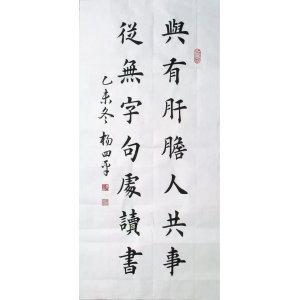 與有肝膽人共事
從無字句處讀書
乙未冬 楊四平